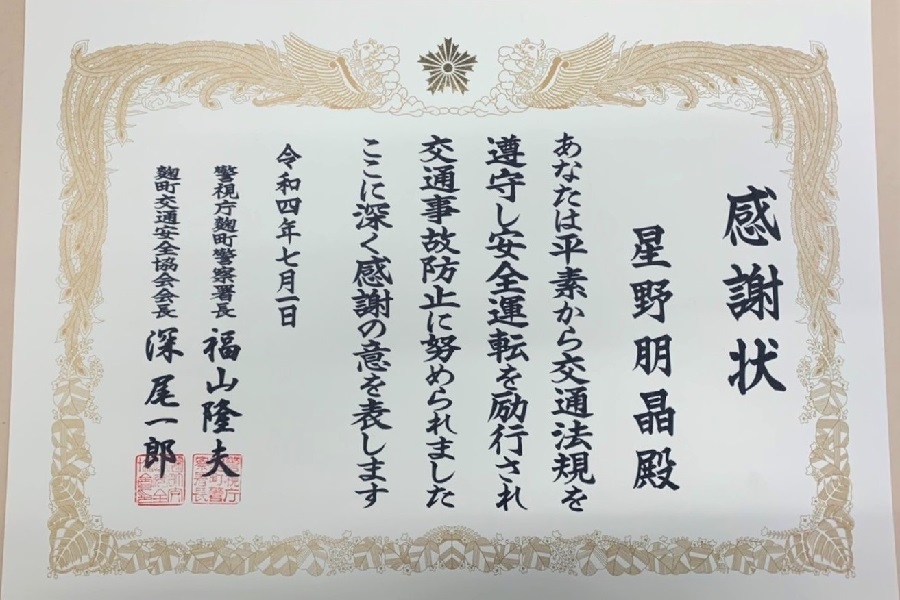 感謝状
星野朋晶殿
あなたは平素から交通法規を
遵守し安全運転を励行され
交通事故防止に努められました
ここに深く感謝の意を表します
令和四年七月一日
警視庁麹町警察署長 福山隆夫
麹町交通安全協会会長 深尾一郎